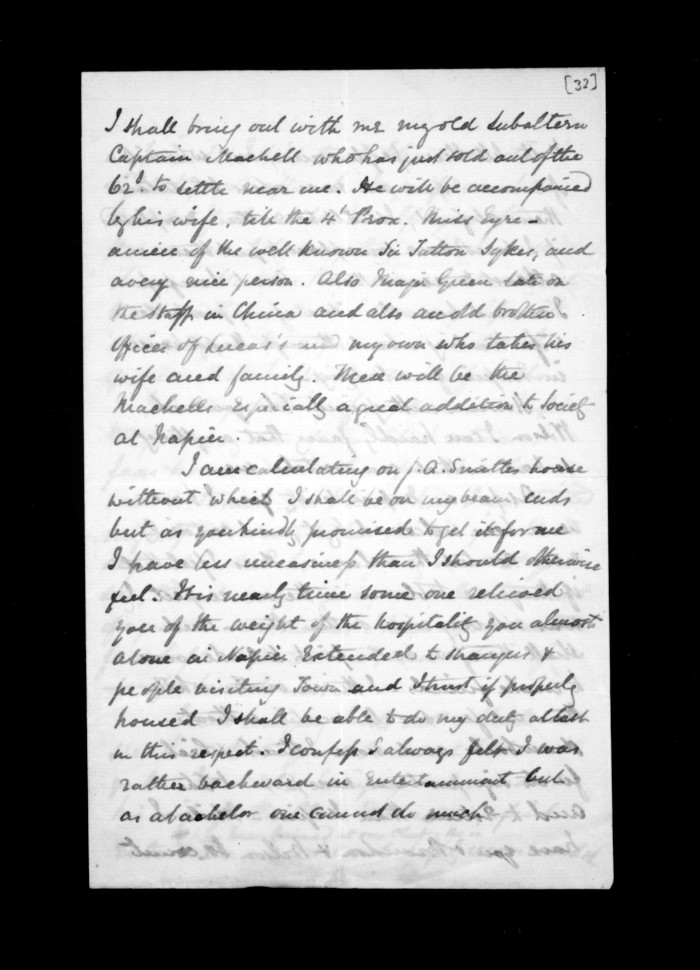 [32]
I shall bring out with me my old Subaltern
Captain Machell who has just sold out of the
62d. to settle near me. He will be accompanied
by his wife, till the 4t Prox. Miss Eyre -
a niece of the well known Sir Tatton Sykes, and
a very nice person. Also Major Green late on
the Staff in China and also an old brother
Officer of Lucas's and my own who takes his
wife and family. These will be the
Machells Especially a great addition to Society
at Napier.
I am calculating on J. A. Smiths house
without which I shall be on my beam ends
but as you kindly promised to get it for me
I have less uneasiness than I should otherwise
feel. It is nearly time some one relieved
you of the weight of the hospitality you almost
alone in Napier Extended to strangers &
people visiting Town and I trust if properly
housed I shall be able to do my duty at least
in this respect. I confess I always felt I was
rather backward in Entertainment but
as a bachelor one cannot do much